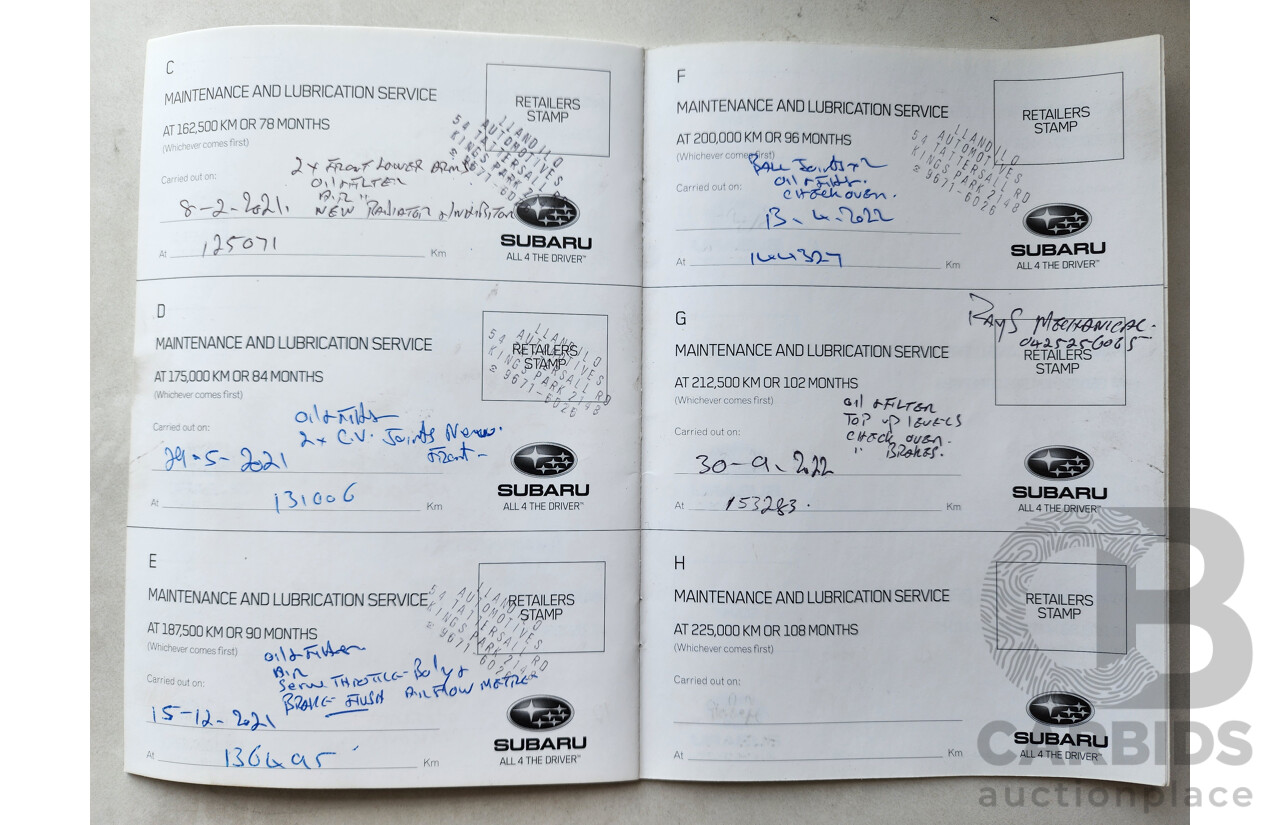 C
MAINTENANCE AND LUBRICATION SERVICE
RETAILERS
STAMP
LLANDILO
AUTOMOTIVES
54 TATTERSALL RD
KINGS PARK 2148
AT 162,500 KM OR 78 MONTHS
(Whichever comes first)
2 x FRONT LOWER ARMS
OIL & FILTER
AIR "
NEW RADIATOR & INHIBITOR
Carried out on:
8-2-2021.
At 125071 Km
SUBARU
ALL 4 THE DRIVER™
D
MAINTENANCE AND LUBRICATION SERVICE
RETAILERS
STAMP
LLANDILO
AUTOMOTIVES
54 TATTERSALL RD
KINGS PARK 2148
9671-6026
AT 175,000 KM OR 84 MONTHS
(Whichever comes first)
Oil & Filter
2 x C.V. Joints New.
Front -
Carried out on:
29-5-2021
At 131006 Km
SUBARU
ALL 4 THE DRIVER™
E
MAINTENANCE AND LUBRICATION SERVICE
RETAILERS
STAMP
LLANDILO
AUTOMOTIVES
54 TATTERSALL RD
KINGS PARK 2148
9671-6026
AT 187,500 KM OR 90 MONTHS
(Whichever comes first)
Oil & Filter
AIR
THROTTLE-Body &
BRAKE FLUSH AIRFLOW METRE
Carried out on:
15-12-2021
At 136495 Km
SUBARU
ALL 4 THE DRIVER™
F
MAINTENANCE AND LUBRICATION SERVICE
RETAILERS
STAMP
LLANDILO
AUTOMOTIVES
54 TATTERSALL RD
KINGS PARK 2148
9671-6026
AT 200,000 KM OR 96 MONTHS
(Whichever comes first)
BALL Joints x 2
Oil & Filter.
CHECK OVER.
Carried out on:
13-4-2022
At 144327 Km
SUBARU
ALL 4 THE DRIVER™
G
MAINTENANCE AND LUBRICATION SERVICE
RAYS MECHANICAL-
0425256065
RETAILERS
STAMP
AT 212,500 KM OR 102 MONTHS
(Whichever comes first)
OIL & FILTER
TOP UP LEVELS
CHECK OVER.
" BRAKES.
Carried out on:
30-9-2022
At 153283. Km
SUBARU
ALL 4 THE DRIVER™
H
MAINTENANCE AND LUBRICATION SERVICE
RETAILERS
STAMP
AT 225,000 KM OR 108 MONTHS
(Whichever comes first)
Carried out on:
At Km
SUBARU
ALL 4 THE DRIVER™
CARBIDS
auctionplace